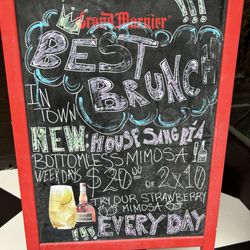 Grand Marnier
!!!
BEST
BRUNCH
IN
TOWN
NEW: HOUSE SANGRIA
BOTTOMLESS MIMOSA !!
WEEKDAYS $20.00 OR 2x10
TRY OUR STRAWBERRY
MIMOSA
EVERY DAY